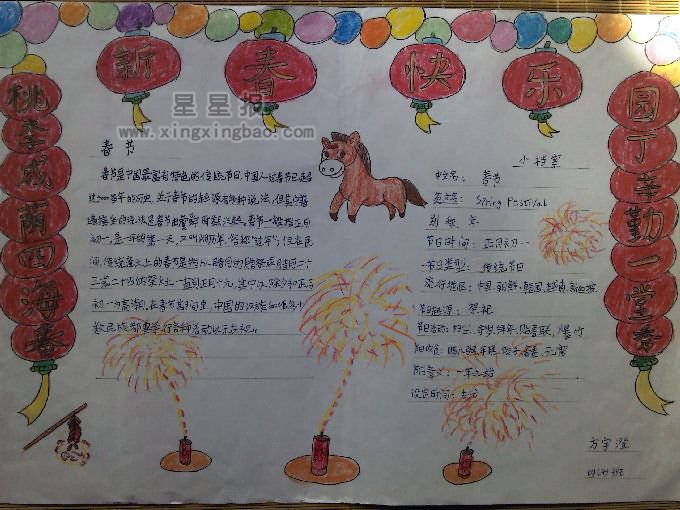 新春快乐
星星报
www.xingxingbao.com
桃李成荫四海春
园丁辛勤一堂秀
春节
春节是中国最富有特色的传统节日,中国人过春节已超
过4000多年的历史,关于春节的起源有多种说法,但其中普
初一,是一年的第一天,又叫阴历年,俗称“过年”;但在民
间,传统意义上的春节是指从腊月初八的腊祭或腊月二十
三或二十四的祭灶,一直到正月十五,其中以除夕和正月
初一为高潮,在春节期间,中国的汉族和很多少
数民族都要举行各种活动以示庆祝。
小档案
中文名:春节
英文名:Spring Festival
别称:年
节日时间:正月初一
节日类型:传统节日
流行地区:中国,朝鲜,韩国,越南,新加坡
节日起源:祭祀
节日活动:扫尘,守岁,拜年,贴春联,爆竹
节日饮食:腊八粥,年糕,饺子,春卷,元宵
节日意义:一年之始
设定时间:古代
方宇澄